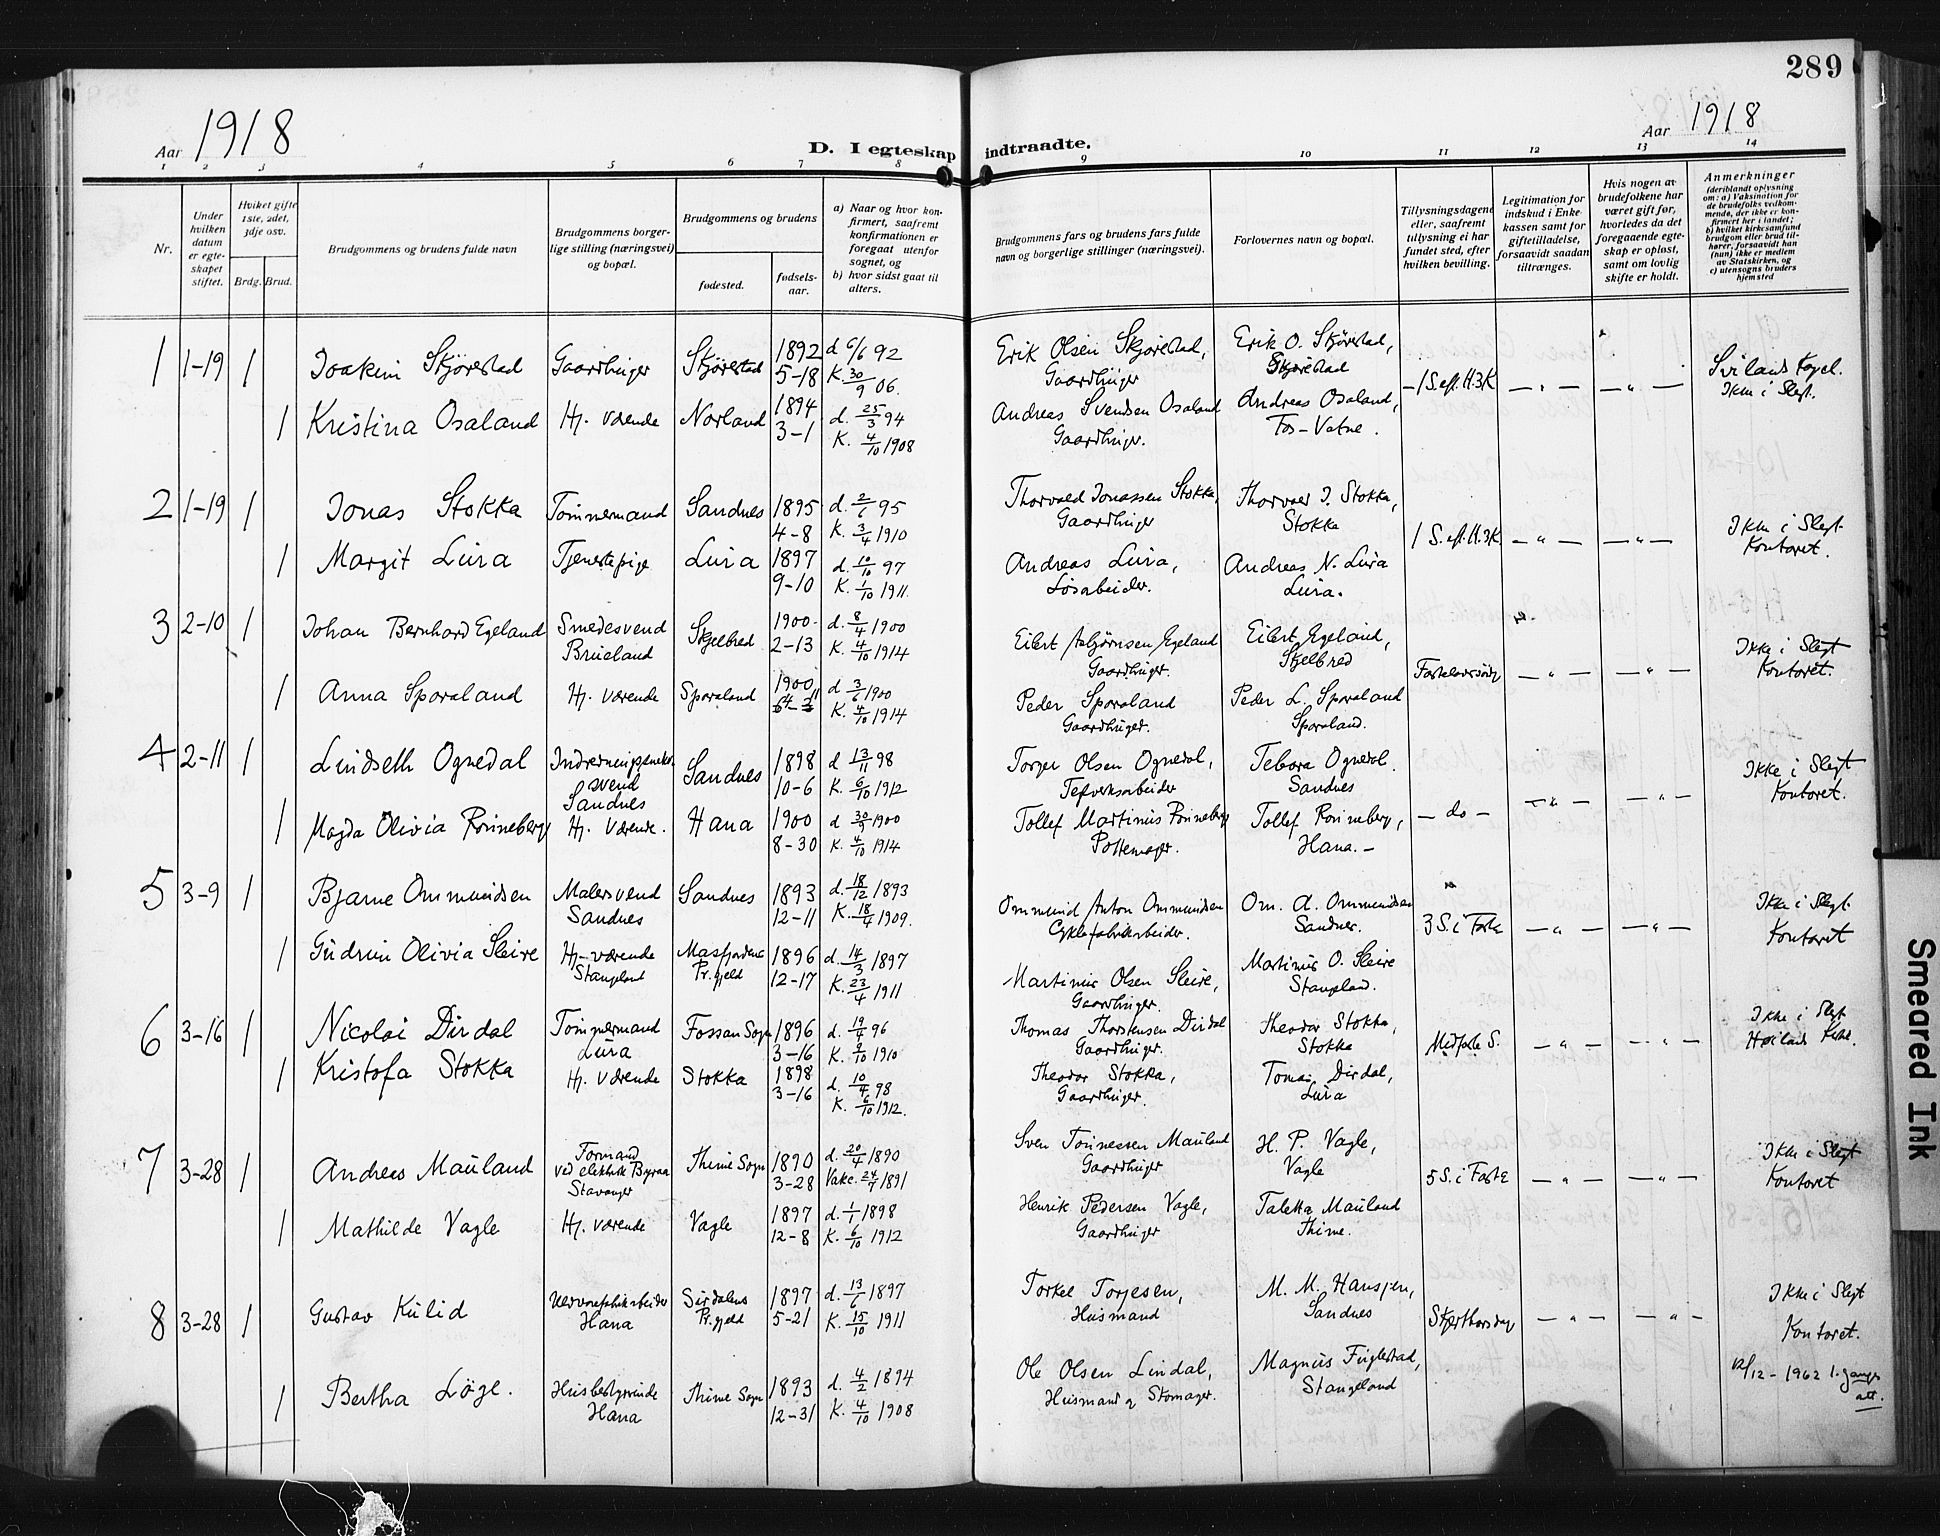 289
Aar 1918
D. Indtraadte i egteskap
Aar 1918
1 2 3 4 5 6 7 8 9 10 11 12 13 14
Nr.
Under hvilken datum er egteskapet stiftet.
Hviket gifte 1ste, 2det, 3dje osv.
Brdg. Brud.
Brudgommens og brudens fulde navn
Brudgommens borgerlige stilling (næringsvei) og bopæl.
Brudgommens og brudens
fødested.
fødselsaar.
a) Naar og hvor konfirmert, saafremt konfirmationen er foregaat utenfor sognet, og
b) hvor sidst gaat til alters.
Brudgommens fars og brudens fars fulde navn og borgerlige stillinger (næringsvei).
Forlovernes navn og bopæl.
Tillysningsdagene eller, saafremt tillysning ei har fundet sted, efter hvilken bevilling.
Legitimation for indskud i Enkekassen samt for giftetilladelse, forsaavidt saadan tiltrænges.
Hvis nogen av brudefolkene har været gift før, hvorledes da det foregaaende egteskap er opløst, samt om lovlig skifte er holdt.
Anmerkninger
(deriblandt oplysning om: a) Vaksination for de brudefolks vedkommende, der ikke er konfirmert her i landet; b) hvilket kirkesamfund brudgom eller brud tilhører, forsaavidt han (hun) ikke er medlem av Statskirken, og c) utensogns bruders hjemsted
1 1-19 1 Joakim Skjörestad Gaardbruger Skjörestad 1892 5-18 d 6/6 92 K. 30/9 06.
Erik Olsen Skjørestad, Gaardbruger
Erik O. Skjørestad, Skjørestad
1 S. eft. H.3K
Svilands Kapel. Ikke i Slegt.
1 Kristina Osaland Hj. værende Norland 1894 3-1 d. 25/3 94 K. 4/10 1908
Andreas Svendsen Osaland Gaardbruger.
Andreas Osaland, Fos-Vatne.
2 1-19 1 Jonas Stokka Tömmermand Sandnes 1895 4-8 d. 2/6 95 K. 3/4 1910
Thorvald Jonassen Stokka, Gaardbruger
Thorvald J. Stokka, Stokka
1 S. eft. H.3K
Ikke i Slegt. Kontoret.
1 Margit Lura Tjenestepige Lura 1897 9-10 d. 10/10 97 K. 1/10 1911.
Andreas Lura, Løsarbeider.
Andreas N. Lura Lura.
3 2-10 1 Johan Bernhard Egeland Smedesvend Brueland Skjelbred 1900 2-13 d. 8/4 1900 K. 4/10 1914
Eilert Asbjörnsen Egeland Gaardbruger.
Eilert Egeland, Skjelbred
Fastelavnsöndg
Ikke i Slegt Kontoret.
1 Anna Sporaland Hj. værende Sporaland 1900 d 3/6 1900 K. 4/10 1914
Peder Sporaland Gaardbruger.
Peder L. Sporaland Sporaland.
4 2-11 1 Lindseth Ognedal Sandnes Sandnes 1898 10-6 d 13/11 98 K. 6/10 1912
Torger Olsen Ognedal,
Tebora Ognedal. Sandnes
- do -
Ikke i Slegt Kontoret.
1 Magda Olivia Rönneberg Hj. Værende. Hana 1900 8-30 d 30/9 1900 K. 4/10 1914
Tollef Martinius Rönneberg Pottemager.
Tollef Rönneberg, Hana. -
5 3-9 1 Bjarne Ommundsen Malersvend Sandnes Sandnes 1893 12-11 d. 18/12 1893 K. 18/4 1909.
Ommund Anton Ommundsen Cyklefabrikarbeider.
Om. A. Ommundsen Sandnes.
3 S. i Faste
Ikke i Slegt. Kontoret
1 Gudrun Olivia Sleire Hj-værende Stangeland Masfjordens Pr.gjeld 1896 12-17 d. 14/3 1897 K. 23/4 1911
Martinus Olsen Sleire, Gaardbruger.
Martinus O. Sleire Stangeland.
6 3-16 1 Nicolai Dirdal Tömmermand Lura Fossan Sogn 1896 3-16 d. 19/4 96 K. 9/10 1910
Thomas Thorstensen Dirdal Gaardbruger.
Theodor Stokka, Stokka
Midfaste S.
Ikke i Slegt Høilands Kirke.
1 Kristofa Stokka Hj. værende Stokka 1898 3-16 d. 10/4 98 K. 6/10 1912.
Theodor Stokka, Gaardbruger.
Tomas Dirdal, Lura
7 3-28 1 Andreas Mauland Formand ved elektrisk Byraa Stavanger Thime Sogn 1890 3-28 d. 20/4 1890 Vakc. 24/7 1891
Sven Tönnessen Mauland Gaardbruger
H. P. Vagle, Vagle
5 S. i Faste
Ikke i Slegt Kontoret
1 Mathilde Vagle Hj. værende Vagle 1897 12-8 d. 1/1 1898 K. 6/10 1912
Henrik Pedersen Vagle, Gaardbruger
Taletta Mauland Thime.
8 3-28 1 Gustav Kulid Uldvarefabrikarbeider Hana Sirdalens Pr.gjeld 1897 5-21 d. 13/6 1897 K. 15/10 1911
Torkel Torjesen, Husmand
M. M. Hansjen, Sandnes
Skjærthorsdag
Ikke i Slegt Kontoret.
1 Bertha Löge. Husbestyrerinde Hana Thime Sogn 1893 12-31 d. 4/2 1894 K. 4/10 1908
Ole Olsen Lindal, Husmand og Skomager.
Magnus Fuglestad, Stangeland
12/12 - 1962 1. gangs att.
Smeared Ink